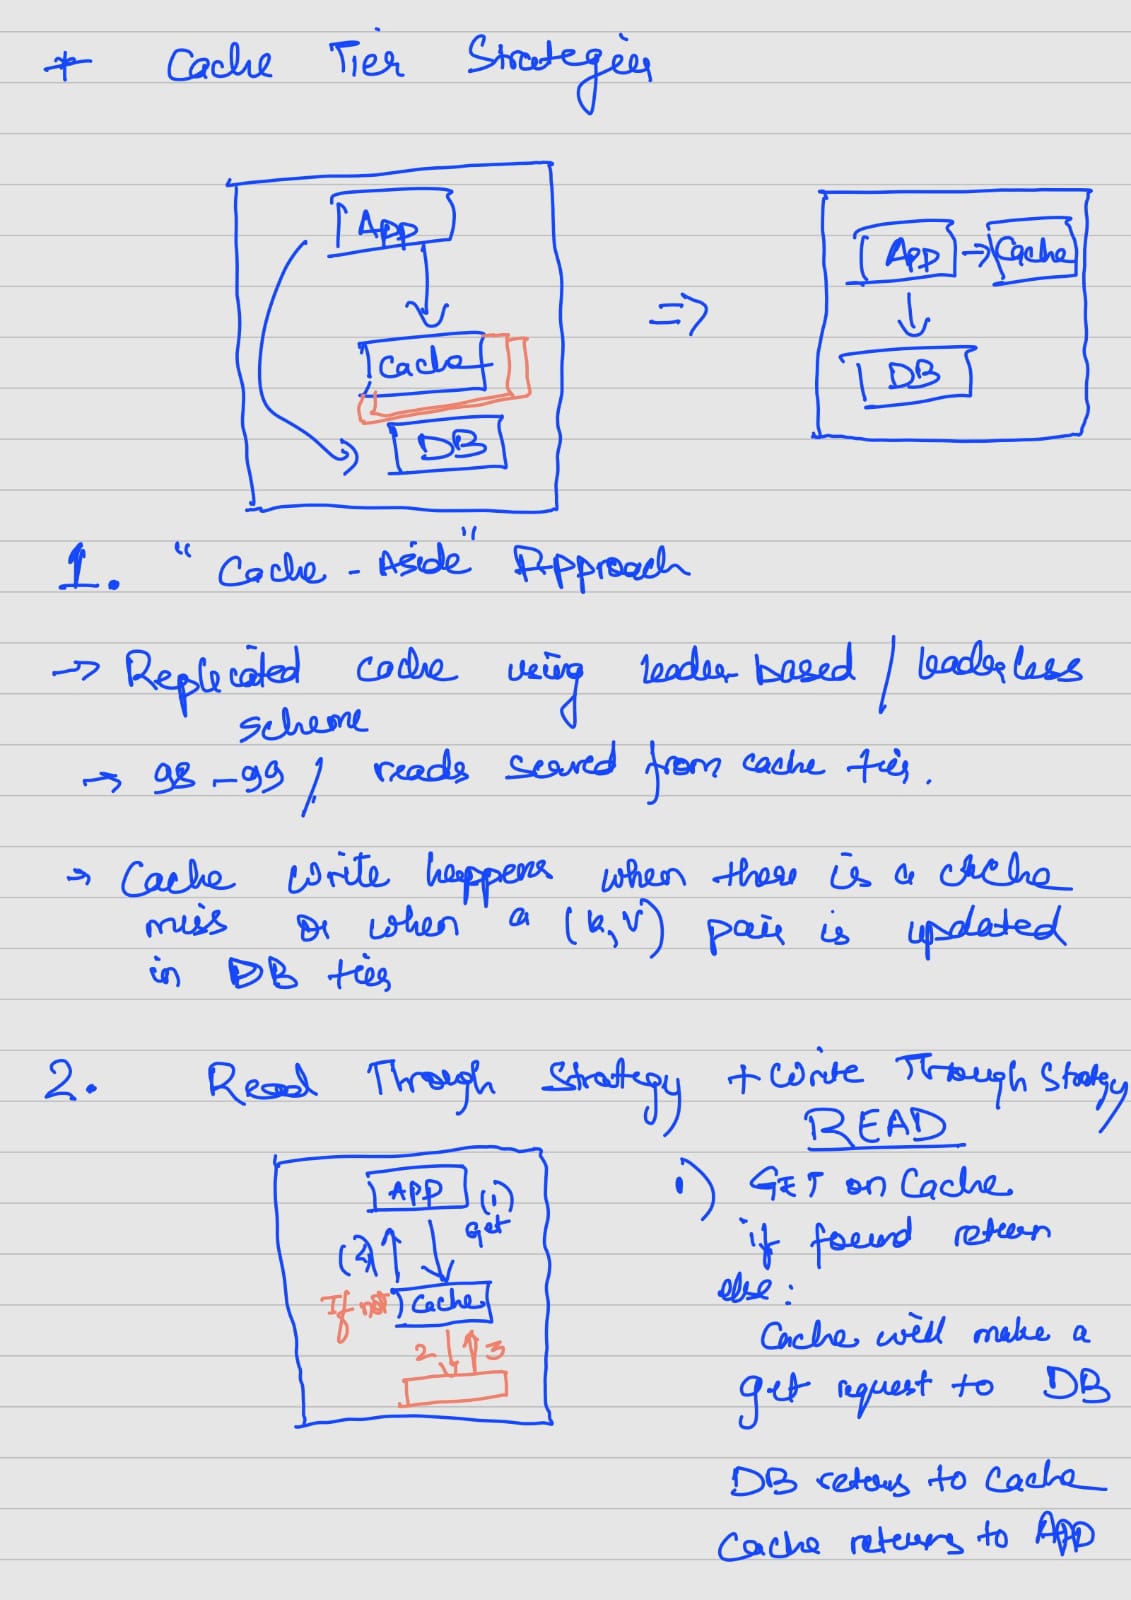 * Cache Tier Strategies
App
Cache
DB
=>
App → Cache
DB
1. "Cache-Aside" Approach
→ Replicated cache using leader based / leaderless
scheme
→ 98-99 / reads served from cache tier.
→ Cache write happens when there is a cache
miss or when a (k,v) pair is updated
in DB tier
2. Read Through Strategy + Write Through Strategy
READ
APP (1)
get
(2)
If not Cache
2 3
i) GET on Cache
if found return
else:
Cache will make a
get request to DB
DB returns to Cache
Cache returns to APP